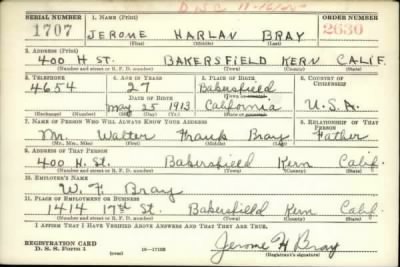 DSC 11-16-25
SERIAL NUMBER 1. NAME (Print) ORDER NUMBER
1707 JEROME HARLAN BRAY 2630
(First) (Middle) (Last)
2. ADDRESS (Print)
400 H ST. BAKERSFIELD KERN CALIF.
(Number and street or R. F. D. number) (Town) (County) (State)
3. TELEPHONE 4. AGE IN YEARS 5. PLACE OF BIRTH 6. COUNTRY OF CITIZENSHIP
4654 27 Bakersfield
DATE OF BIRTH (Town or county)
May 25 1913 California U.S.A.
(Exchange) (Number) (Mo.) (Day) (Yr.) (State or country)
7. NAME OF PERSON WHO WILL ALWAYS KNOW YOUR ADDRESS 8. RELATIONSHIP OF THAT PERSON
Mr. Walter Frank Bray Father
(Mr., Mrs., Miss) (First) (Middle) (Last)
9. ADDRESS OF THAT PERSON
400 H. St. Bakersfield Kern Calif.
(Number and street or R. F. D. number) (Town) (County) (State)
10. EMPLOYER'S NAME
W. F. Bray
11. PLACE OF EMPLOYMENT OR BUSINESS
1414 17th St. Bakersfield Kern Calif.
(Number and street or R. F. D. number) (Town) (County) (State)
I AFFIRM THAT I HAVE VERIFIED ABOVE ANSWERS AND THAT THEY ARE TRUE.
REGISTRATION CARD
D. S. S. Form 1 (over) 16—17105 Jerome H Bray
(Registrant's signature)